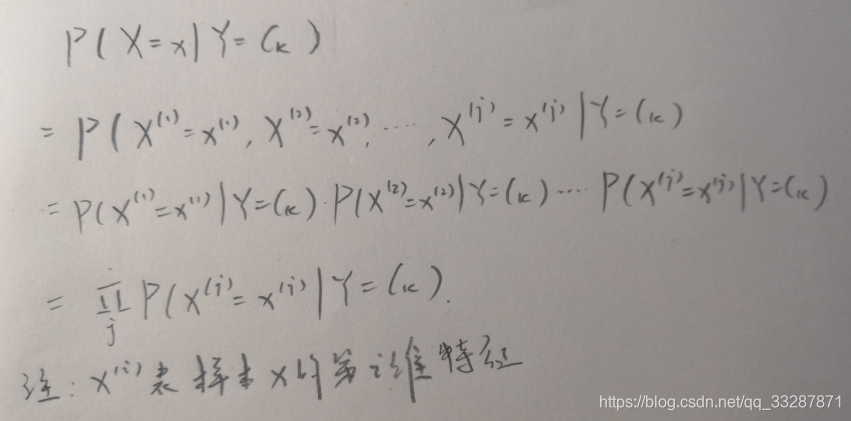 P(X=x|Y=Ck)
=P(X^(1)=x^(1), X^(2)=x^(2), ……, X^(j)=x^(j)|Y=Ck)
=P(X^(1)=x^(1)|Y=Ck)·P(X^(2)=x^(2)|Y=Ck)……P(X^(j)=x^(j)|Y=Ck)
=∏_j P(X^(j)=x^(j)|Y=Ck).
注:x^(i)表样本x的第i维特征
https://blog.csdn.net/qq_33287871